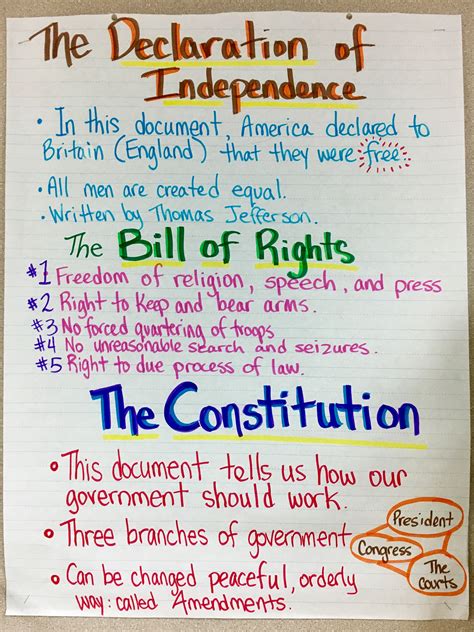 The Declaration of
Independence
• In this document, America declared to
Britain (England) that they were free.
• All men are created equal.
• Written by Thomas Jefferson.
The Bill of Rights
#1 Freedom of religion, speech, and press
#2 Right to Keep and bear arms.
#3 No forced quartering of troops
#4 No unreasonable search and seizures.
#5 Right to due process of law.
The Constitution
• This document tells us how our
government should work.
• Three branches of government
President
Congress
The
Courts
• Can be changed peaceful, orderly
way: called Amendments.